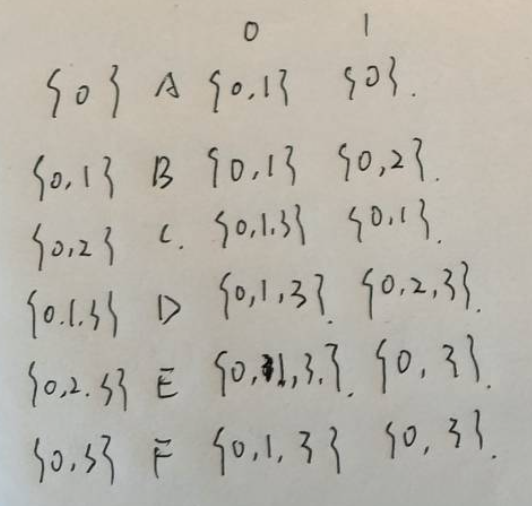 0 1
{0} A {0,1} {0}.
{0,1} B {0,1} {0,2}.
{0,2} C. {0,1.3} {0,1}.
{0.1.3} D {0,1,3}. {0,2,3}.
{0,2.3} E {0,1,3.}. {0,3}.
{0,3} F {0,1,3} {0,3}.